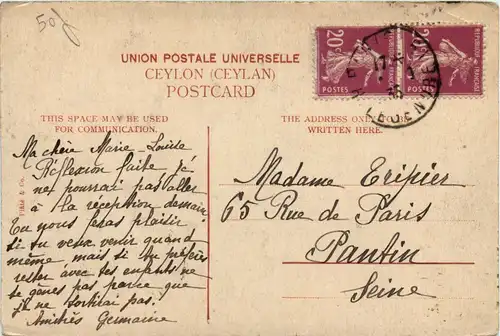 50
UNION POSTALE UNIVERSELLE
CEYLON (CEYLAN)
POSTCARD
20c
POSTES
REPUBLIQUE FRANÇAISE
20c
POSTES
REPUBLIQUE FRANÇAISE
17
35
THIS SPACE MAY BE USED
FOR COMMUNICATION.
THE ADDRESS ONLY TO BE
WRITTEN HERE.
Plâté & Co.
Ma chère Marie-Louise
Réflexion faite je
ne pourrai pas aller
à la réception demain.
Tu nous feras plaisir
si tu veux venir quand
même mais si tu préfères
rester avec tes enfants ne
te gênes pas parce que
je ne sortirai pas.
Amitiés Germaine
Madame Eripier
65 Rue de Paris
Pantin
Seine